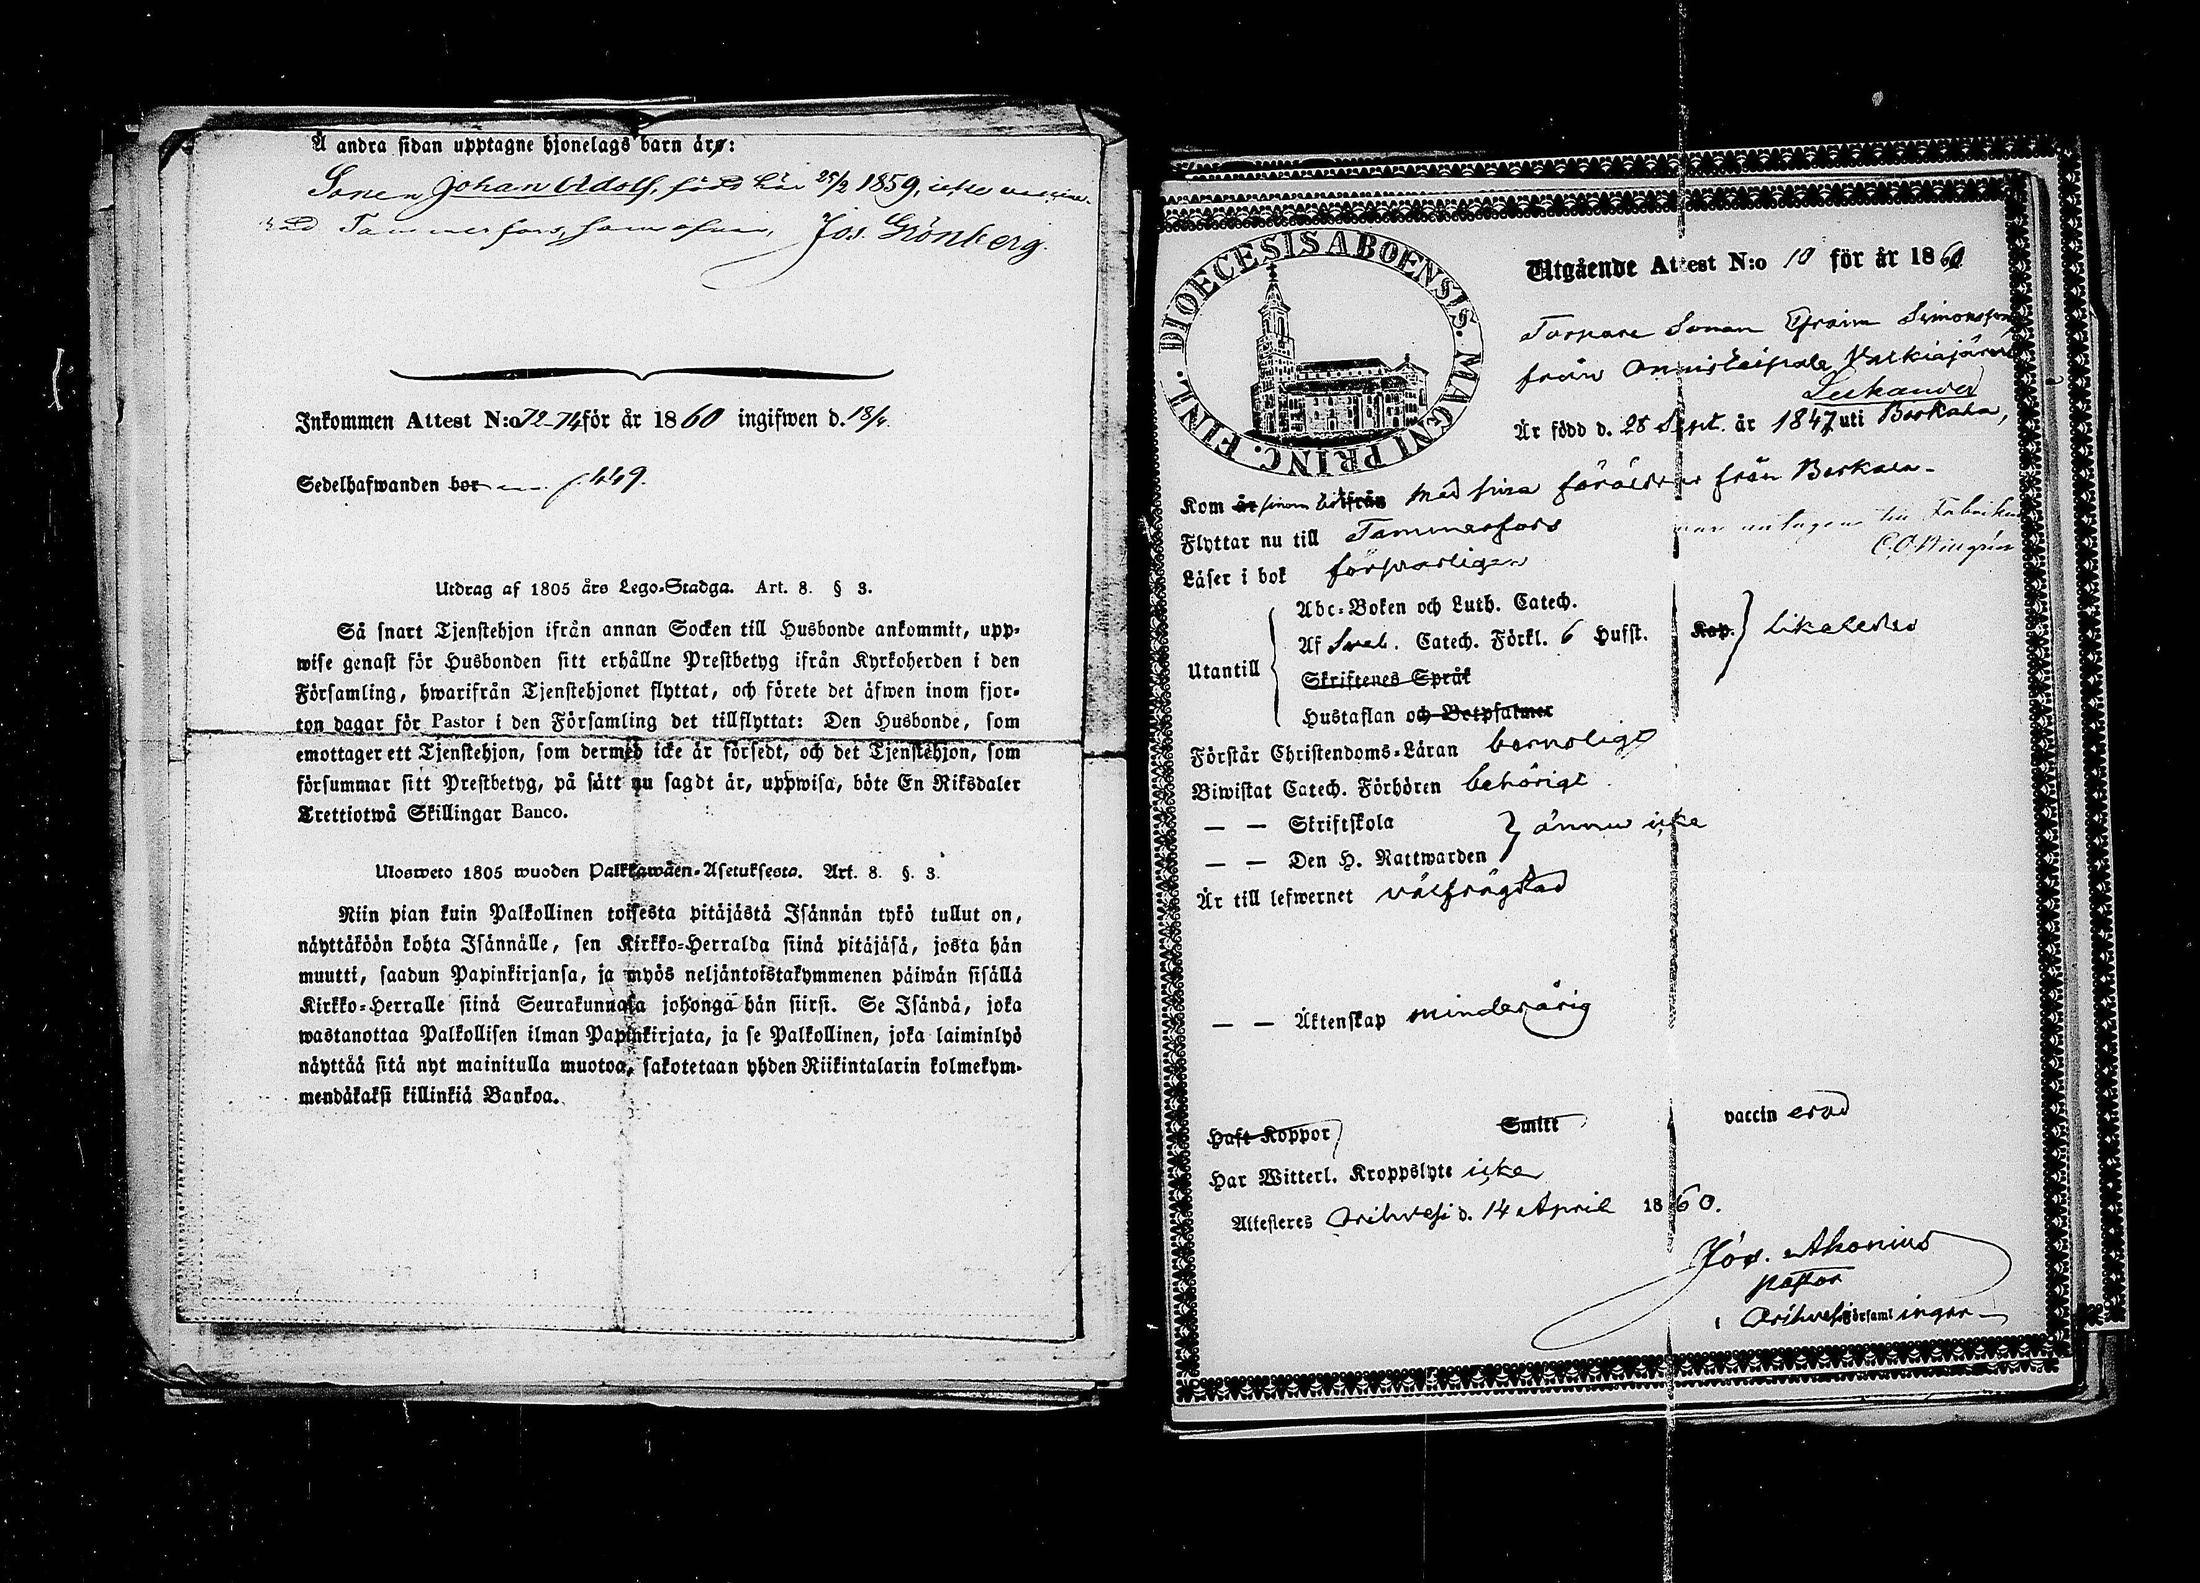 Å andra sidan upptagne hjonelags barn äro:
Sonen Johan Adolf, född här 25/2 1859, icke vaccine-
rad Tammerfors, som ofvan, Jos. Grönberg.
Inkommen Attest N:o 72-74 för år 1860 ingifwen d. 18/4
Sedelhafwanden bor f. 449.
Utdrag af 1805 års Lego-Stadga. Art. 8. § 3.
Så snart Tjenstehjon ifrån annan Socken till Husbonde ankommit, upp-
wise genast för Husbonden sitt erhållne Prestbetyg ifrån Kyrkoherden i den
Församling, hwarifrån Tjenstehjonet flyttat, och förete det äfwen inom fjor-
ton dagar för Pastor i den Församling det tillflyttat: Den Husbonde, som
emottager ett Tjenstehjon, som dermed icke är försedt, och det Tjenstehjon, som
försummar sitt Prestbetyg, på sätt nu sagdt är, uppwisa, böte En Riksdaler
Trettiotwå Skillingar Banco.
Ulosweto 1805 wuoden Palkkawäen-Asetuksesta. Art. 8. §. 3.
Niin pian kuin Palkollinen toisesta pitäjästä Isännän tykö tullut on,
näyttäköön kohta Isännälle, sen Kirkko-Herralda siinä pitäjäsä, josta hän
muutti, saadun Papinkirjansa, ja myös neljäntoistakymmenen päiwän sisällä
Kirkko-Herralle siinä Seurakunnasa johonga hän siirsi. Se Isändä, joka
wastanottaa Palkollisen ilman Papinkirjata, ja se Palkollinen, joka laiminlyö
näyttää sitä nyt mainitulla muotoa, sakotetaan yhden Riikintalarin kolmekym-
mendäkaksi killinkiä Bankoa.
DIOECESIS ABOENSIS. MAGNI PRINC. FINL.
Utgående Attest N:o 10 för år 1860
Torpare Sonen Efraim Simonsson
från Onnistaipale Valkiajärvi
Lukander
Är född d. 28 Sept. år 1847 uti Birkala,
Kom år ifrån med sina föräldrar från Birkala
Flyttar nu till Tammerfors
var antagen till Fabriken
Läser i bok försvarligen
Abc-Boken och Luth. Catech.
Af Sveb. Catech. Förkl. 6 Hufst. Kap. likaledes
Utantill
Skriftenes Språk
Hustaflan och Botpsalmer
Förstår Christendoms-Läran barnsligt
Biwistat Catech. Förhören behörigt
— — Skriftskola ännu icke
— — Den H. Nattwarden
Är till lefwernet välfrägdad
— — Äktenskap minderårig
Haft Koppor Smitt vaccinerad
Har Witterl. Kroppslyte icke
Attesteres Orihvesi d. 14 April 1860.
Jos. Ahonius
pastor
i Orihvesi församlingar